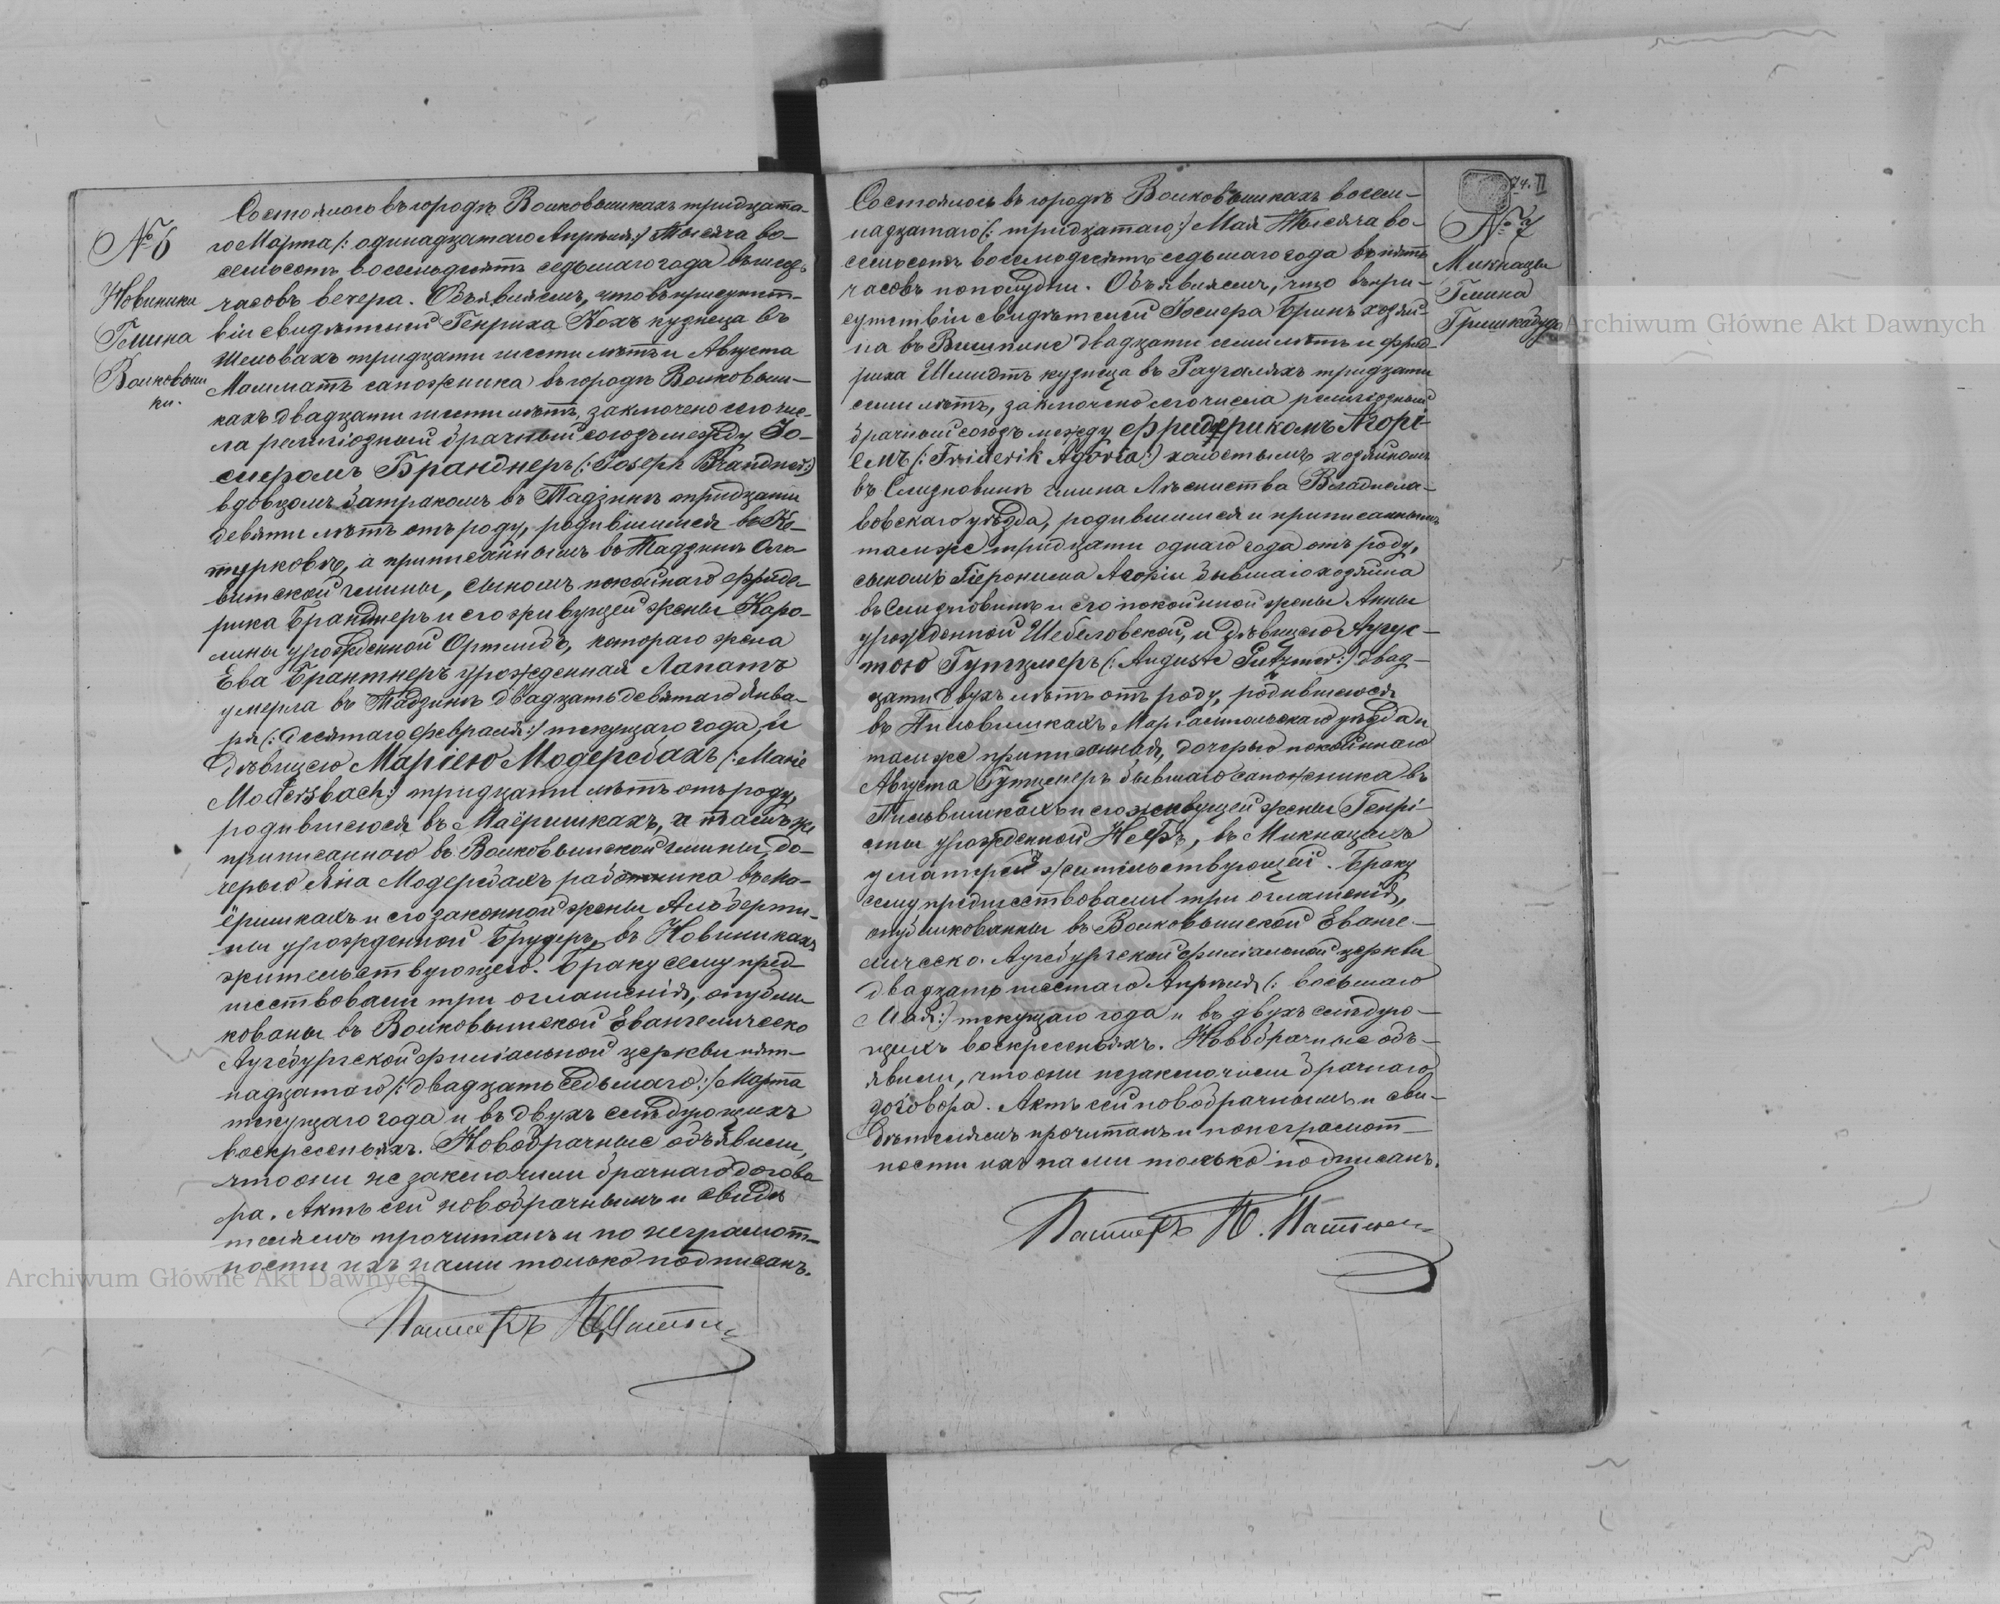 № 6
Новиники
Гмина
Волковыш
ки.
Состоялось въ городѣ Волковышкахъ тридцата-
го Марта (: одинадцатаго Апрѣля :) Тысяча во-
семьсотъ восемьдесятъ седьмаго года въ шесть
часовъ вечера. Объявляемъ, что въ присутст-
віи свидѣтелей Генриха Кохъ кузнеца въ
Шельвахъ тридцати шести лѣтъ и Августа
сапожника въ городѣ Волковыш-
кахъ двадцати шести лѣтъ, заключено сего чис-
ла религіозный брачный союзъ между Іо-
сифомъ Бранднеръ (: Joseph Brandner :)
вдовцомъ батракомъ въ тридцати
девяти лѣтъ отъ роду, родившимся въ Ке-
турковѣ, а приписаннымъ въ
гмины, сыномъ покойнаго Фриде-
рика Бранднеръ и его живущей жены Каро-
лины урожденной Ортлибъ, котораго жена
Ева Брантнеръ урожденная Лапатъ
умерла въ двадцать девятаго Янва-
ря (: десятаго Февраля :) текущаго года, и
дѣвицею Маріею Модерсбахъ (: Marie
Modersbach :) тридцати лѣтъ отъ роду,
родившеюся въ Маёришкахъ, и тамъже
приписанною въ Волковышской гмины, до-
черью Яна Модерсбахъ работника въ Ма-
ёришкахъ и его законной жены Альберти-
ны урожденной Брудеръ, въ Новиникахъ
жительствующею. Браку сему пред-
шествовали три оглашенія, опубли-
кованы въ Волковышской Евангелическо
Аугсбургской филіальной церкви пят-
надцатаго (: двадцать седьмаго :) Марта
текущаго года и въ двухъ слѣдующихъ
воскресеньяхъ. Новобрачные объявили,
что они не заключили брачнаго догово
ра. Актъ сей новобрачнымъ и свидѣ
телямъ прочитанъ и по неграмот-
ности ихъ нами только подписанъ.
Пасторъ
74. II
№ 7
Микнацы
Гмина
Гришкабуда
Состоялось въ городѣ Волковышкахъ восем-
надцатаго (: тридцатаго :) Мая Тысяча во-
семьсотъ восемьдесятъ седьмаго года въ пять
часовъ пополудни. Объявляемъ, что въ при-
сутствіи свидѣтелей Іосифа Бринъ хозяи-
на въ двадцати семи лѣтъ и Фрид-
риха Шмидтъ кузнеца въ тридцати
семи лѣтъ, заключено сего числа религіозный
брачный союзъ между Фридерикомъ Агорі-
емъ (: Friderik Agoria :) холостымъ хозяиномъ
въ Слизновизнѣ гмина Лѣсництва Владисла-
вовскаго уѣзда, родившимся и приписаннымъ
тамже тридцати одного года отъ роду,
сыномъ Гіеронима Агоріи бывшаго хозяина
въ Слизновизнѣ и его покойной жены Анны
урожденной Шебеловской, и дѣвицею Аугус-
тою Гутцмеръ (: Auguste Gutzmer :) двад-
цати двухъ лѣтъ отъ роду, родившеюся
въ Пильвишкахъ Маріампольскаго уѣзда и
тамже приписанная, дочерью покойнаго
Августа Гутцмеръ бывшаго сапожника въ
Пильвишкахъ и его живущей жены Генрі-
еты урожденной Нефъ, въ Микнацахъ
у матерей жительствующей. Браку
сему предшествовали три оглашенія,
опубликованны въ Волковышской Еванге-
лическо. Аугсбургской филіальной церкви
двадцать шестаго Апрѣля (: восьмаго
Мая :) текущаго года и въ двухъ слѣдую-
щихъ воскресеньяхъ. Новобрачные объ-
явили, что они незаключили брачнаго
договора. Актъ сей новобрачнымъ и сви-
дѣтелямъ прочитанъ и по неграмот-
ности ихъ нами только подписанъ.
Пасторъ
Archiwum Główne Akt Dawnych
Archiwum Główne Akt Dawnych